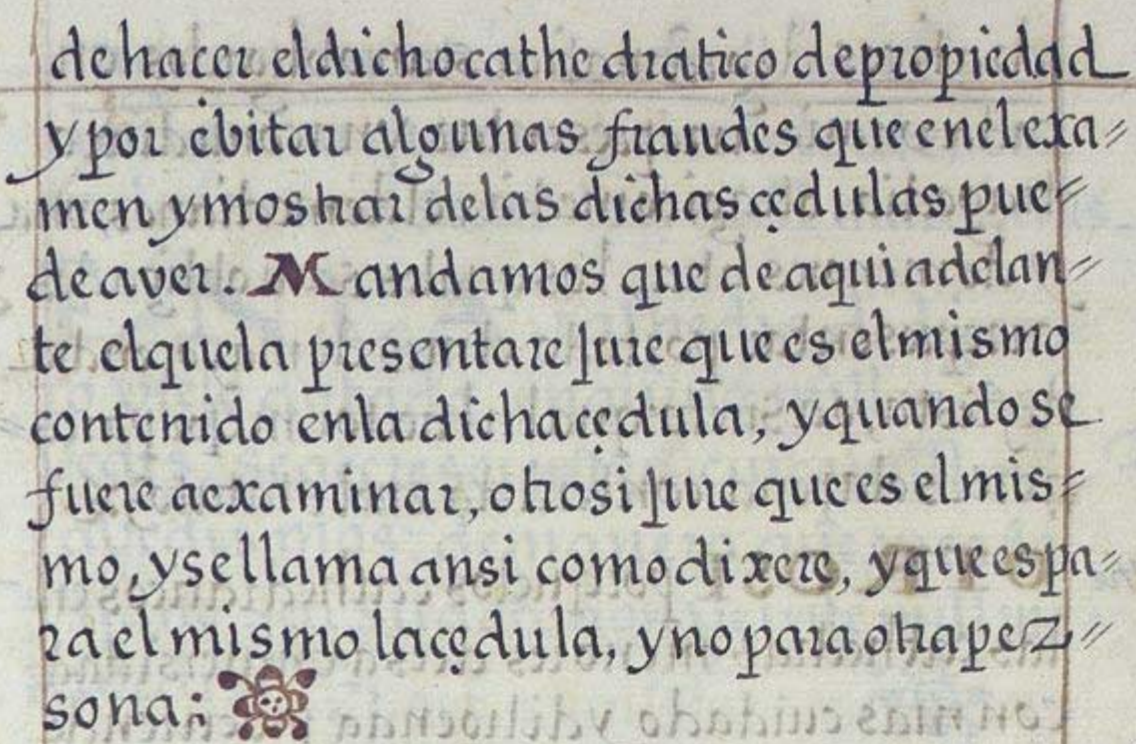 de hacer el dicho cathedratico de propiedad
y por ebitar algunas fraudes que en el exa=
men y mostrar de las dichas çedulas pue=
de aver. Mandamos que de aqui adelan=
te el que la presentare jure que es el mismo
contenido en la dicha çedula, y quando se
fuere a examinar, otrosi jure que es el mis=
mo, y se llama ansi como dixere, y que es pa=
ra el mismo la çedula, y no para otra per=
sona: